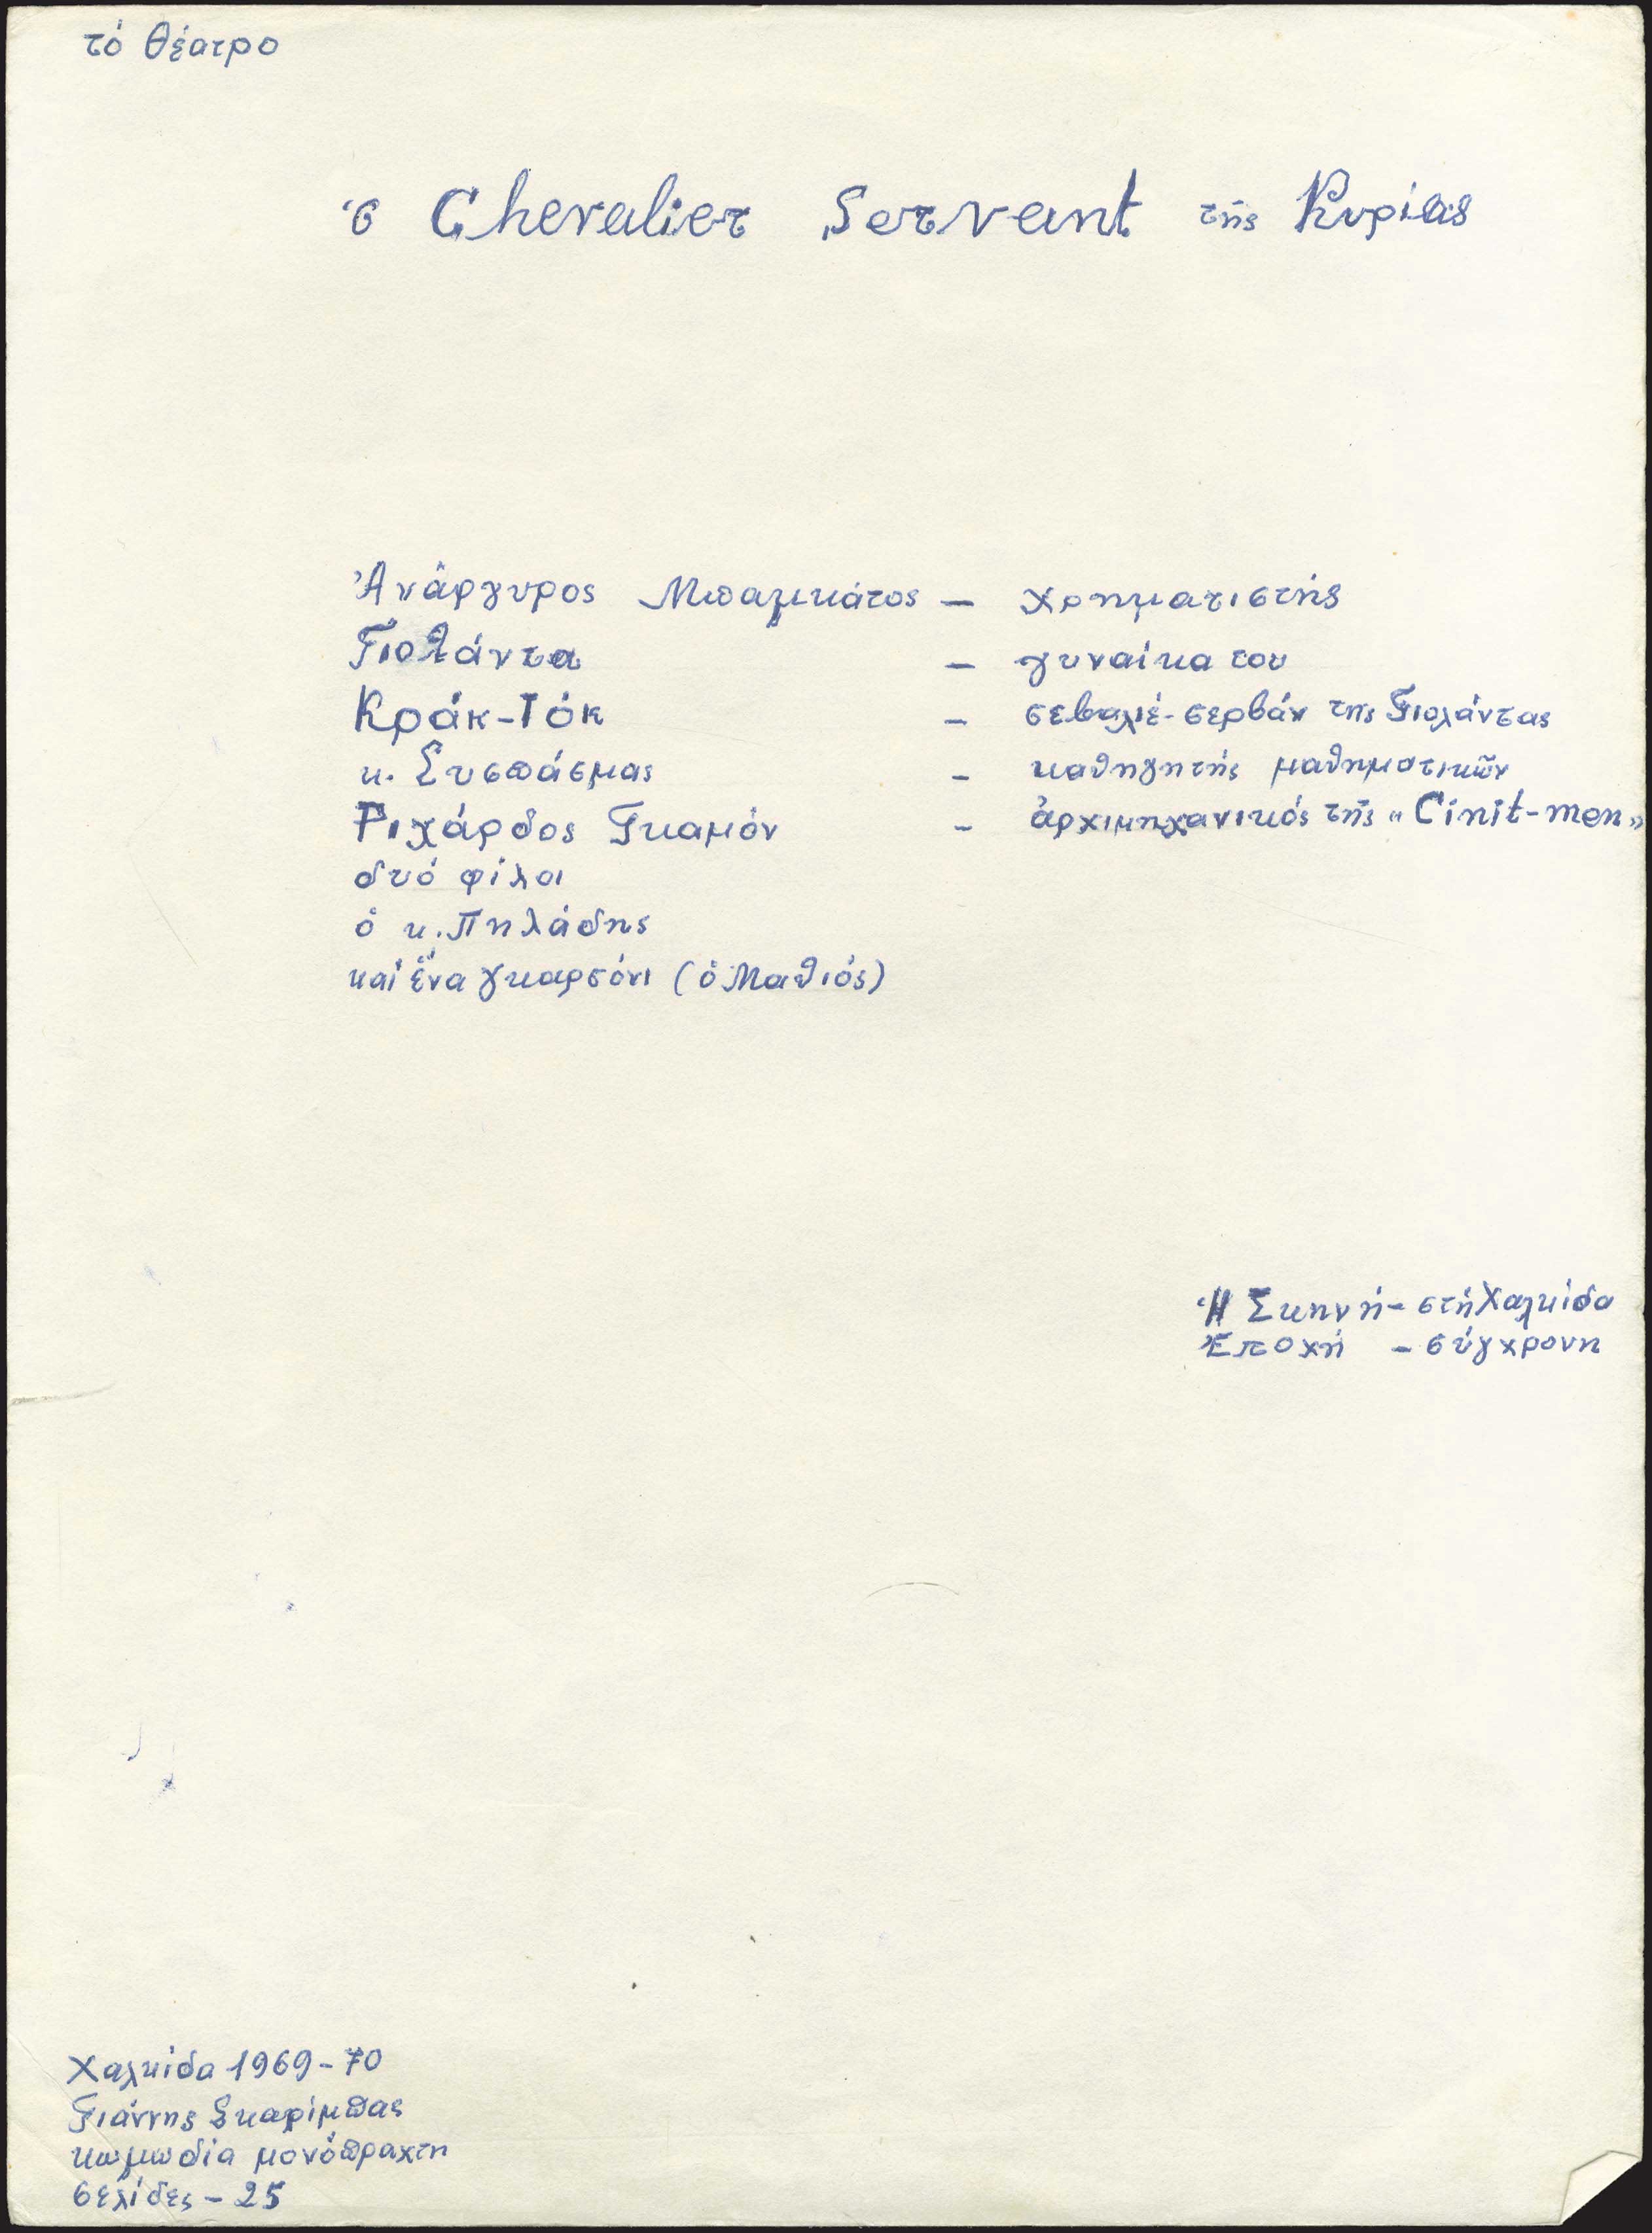 τό θέατρο
ὁ Chevalier Servant τῆς Κυρίας
Ἀνάργυρος Μπαλκάτος – χρηματιστής
Γιολάντα – γυναίκα του
Κράκ-Τόκ – σεβαλιέ-σερβάν τῆς Γιολάντας
κ. Συσπάσμας – καθηγητής μαθηματικῶν
Ριχάρδος Γκαμόν – ἀρχιμηχανικός τῆς «Cinit-men»
δυό φίλοι
ὁ κ. Πηλάδης
καί ἕνα γκαρσόνι (ὁ Μαθιός)
Ἡ Σκηνή – στή Χαλκίδα
Ἐποχή – σύγχρονη
Χαλκίδα 1969-70
Γιάννης Σκαρίμπας
κωμωδία μονόπραχτη
σελίδες – 25